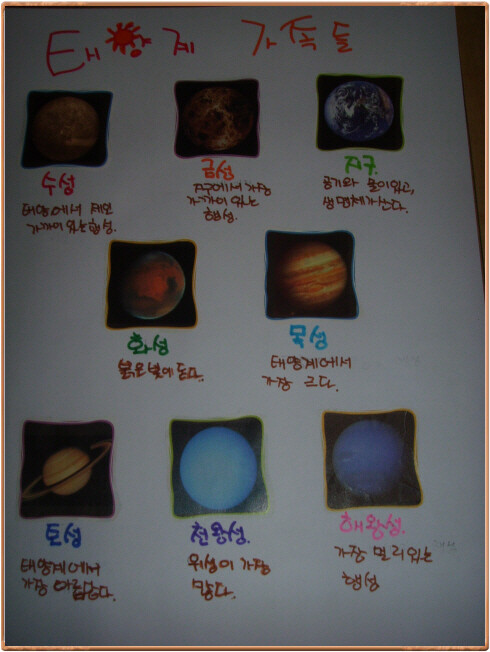 태양계 가족들
수성
태양에서 제일
가까이 있는 행성.
금성
지구에서 가장
가까이 있는
행성.
지구.
공기와 물이 있고,
생명체가 산다.
화성
붉은 빛에 돈다.
목성
태양계에서
가장 크다.
토성
태양계에서
가장 아름답다.
천왕성.
위성이 가장
많다.
해왕성.
가장 멀리 있는
행성